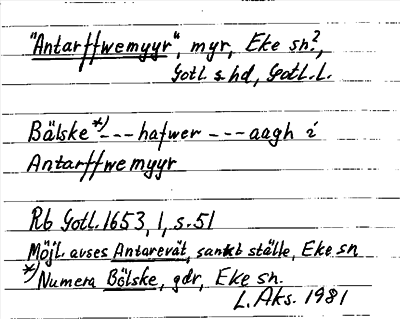 "Antarffwemyyr", myr, Eke sn?,
Gotl. s hd, Gotl. L.
Bälske *) --- hafwer --- aagh i
Antarffwemyyr
Rb Gotl. 1653, 1, s. 51
Möjl. avses Antarevät, sankt ställe, Eke sn
*) Numera Bölske, gdr, Eke sn.
L. Aks. 1981